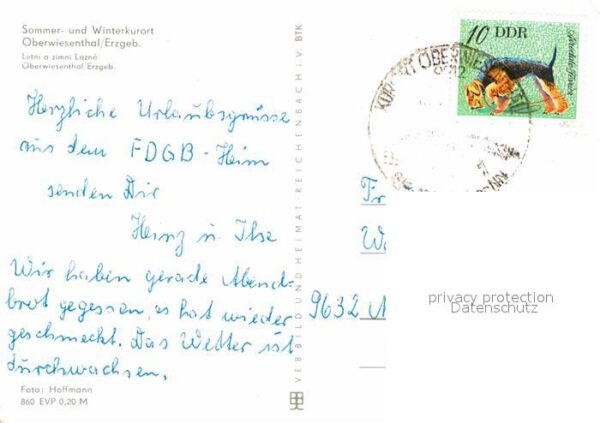 Sommer- und Winterkurort
Oberwiesenthal/Erzgeb.
Letni a zimni Lazně
Oberwiesenthal Erzgeb.
Herzliche Urlaubsgrüsse
aus dem FDGB-Heim
senden Dir
Heinz u. Ilse
Wir haben gerade Abend-
brot gegessen, es hat wieder
geschmeckt. Das Wetter ist
durchwachsen.
Foto: Hoffmann
860 EVP 0,20 M
VEB BILD UND HEIMAT REICHENBACH i. V. BTK
10 DDR
KURORT OBERWIESENTHAL
9312
Fr
9632
privacy protection
Datenschutz